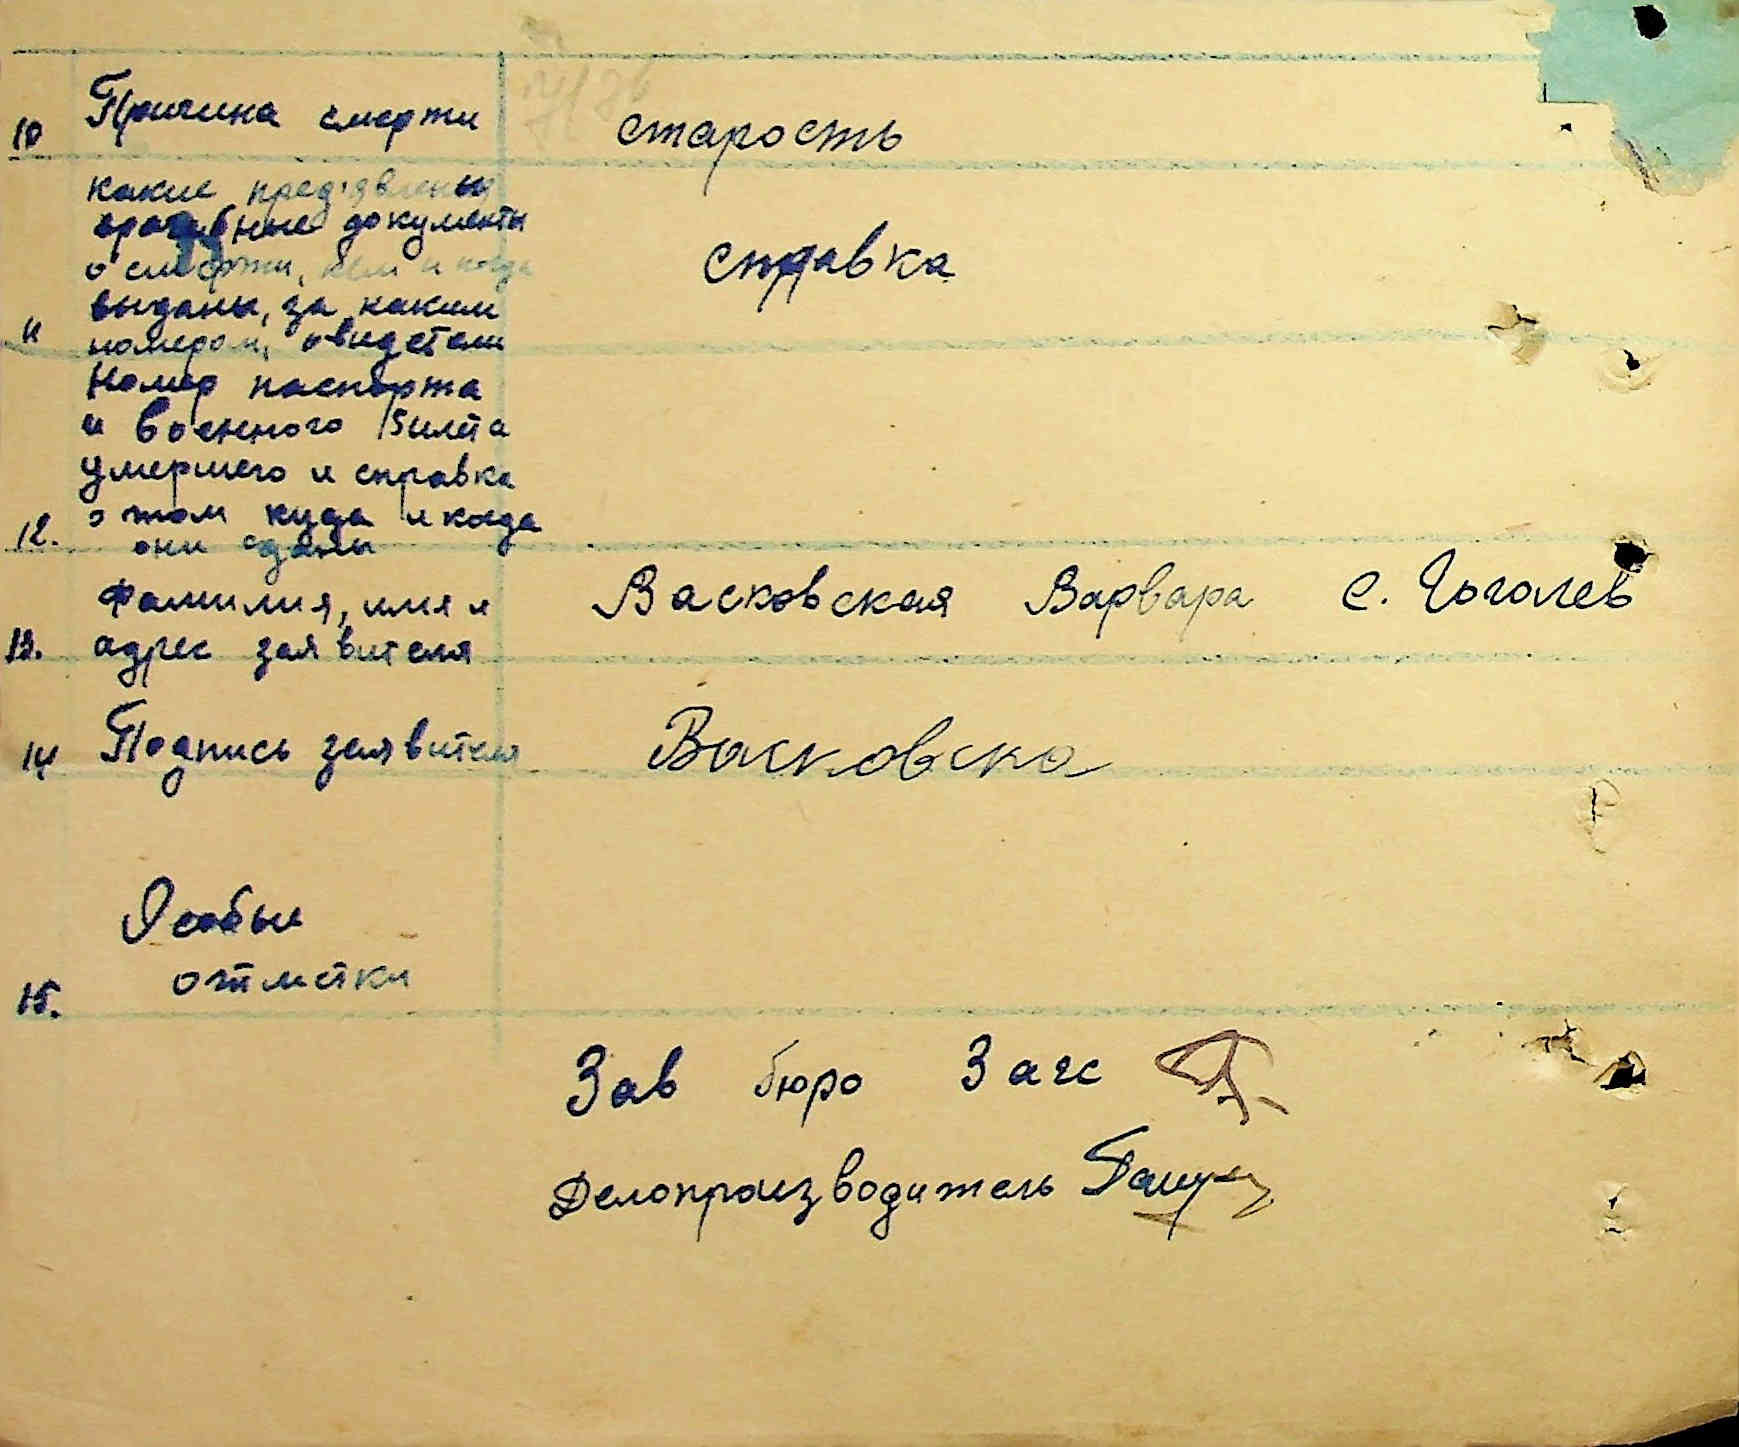 10 Причина смерти старость
какие предъявлены
врачебные документы
о смерти, кем и когда справка
выданы, за каким
11 номером, свидетели
Номер паспорта
и военного билета
умершего и справка
о том куда и когда
12. они сданы
Фамилия, имя и Васковская Варвара с. Гоголев
13. адрес заявителя
14 Подпись заявителя Васковска
Особые
15. отметки
Зав бюро Загс
Делопроизводитель